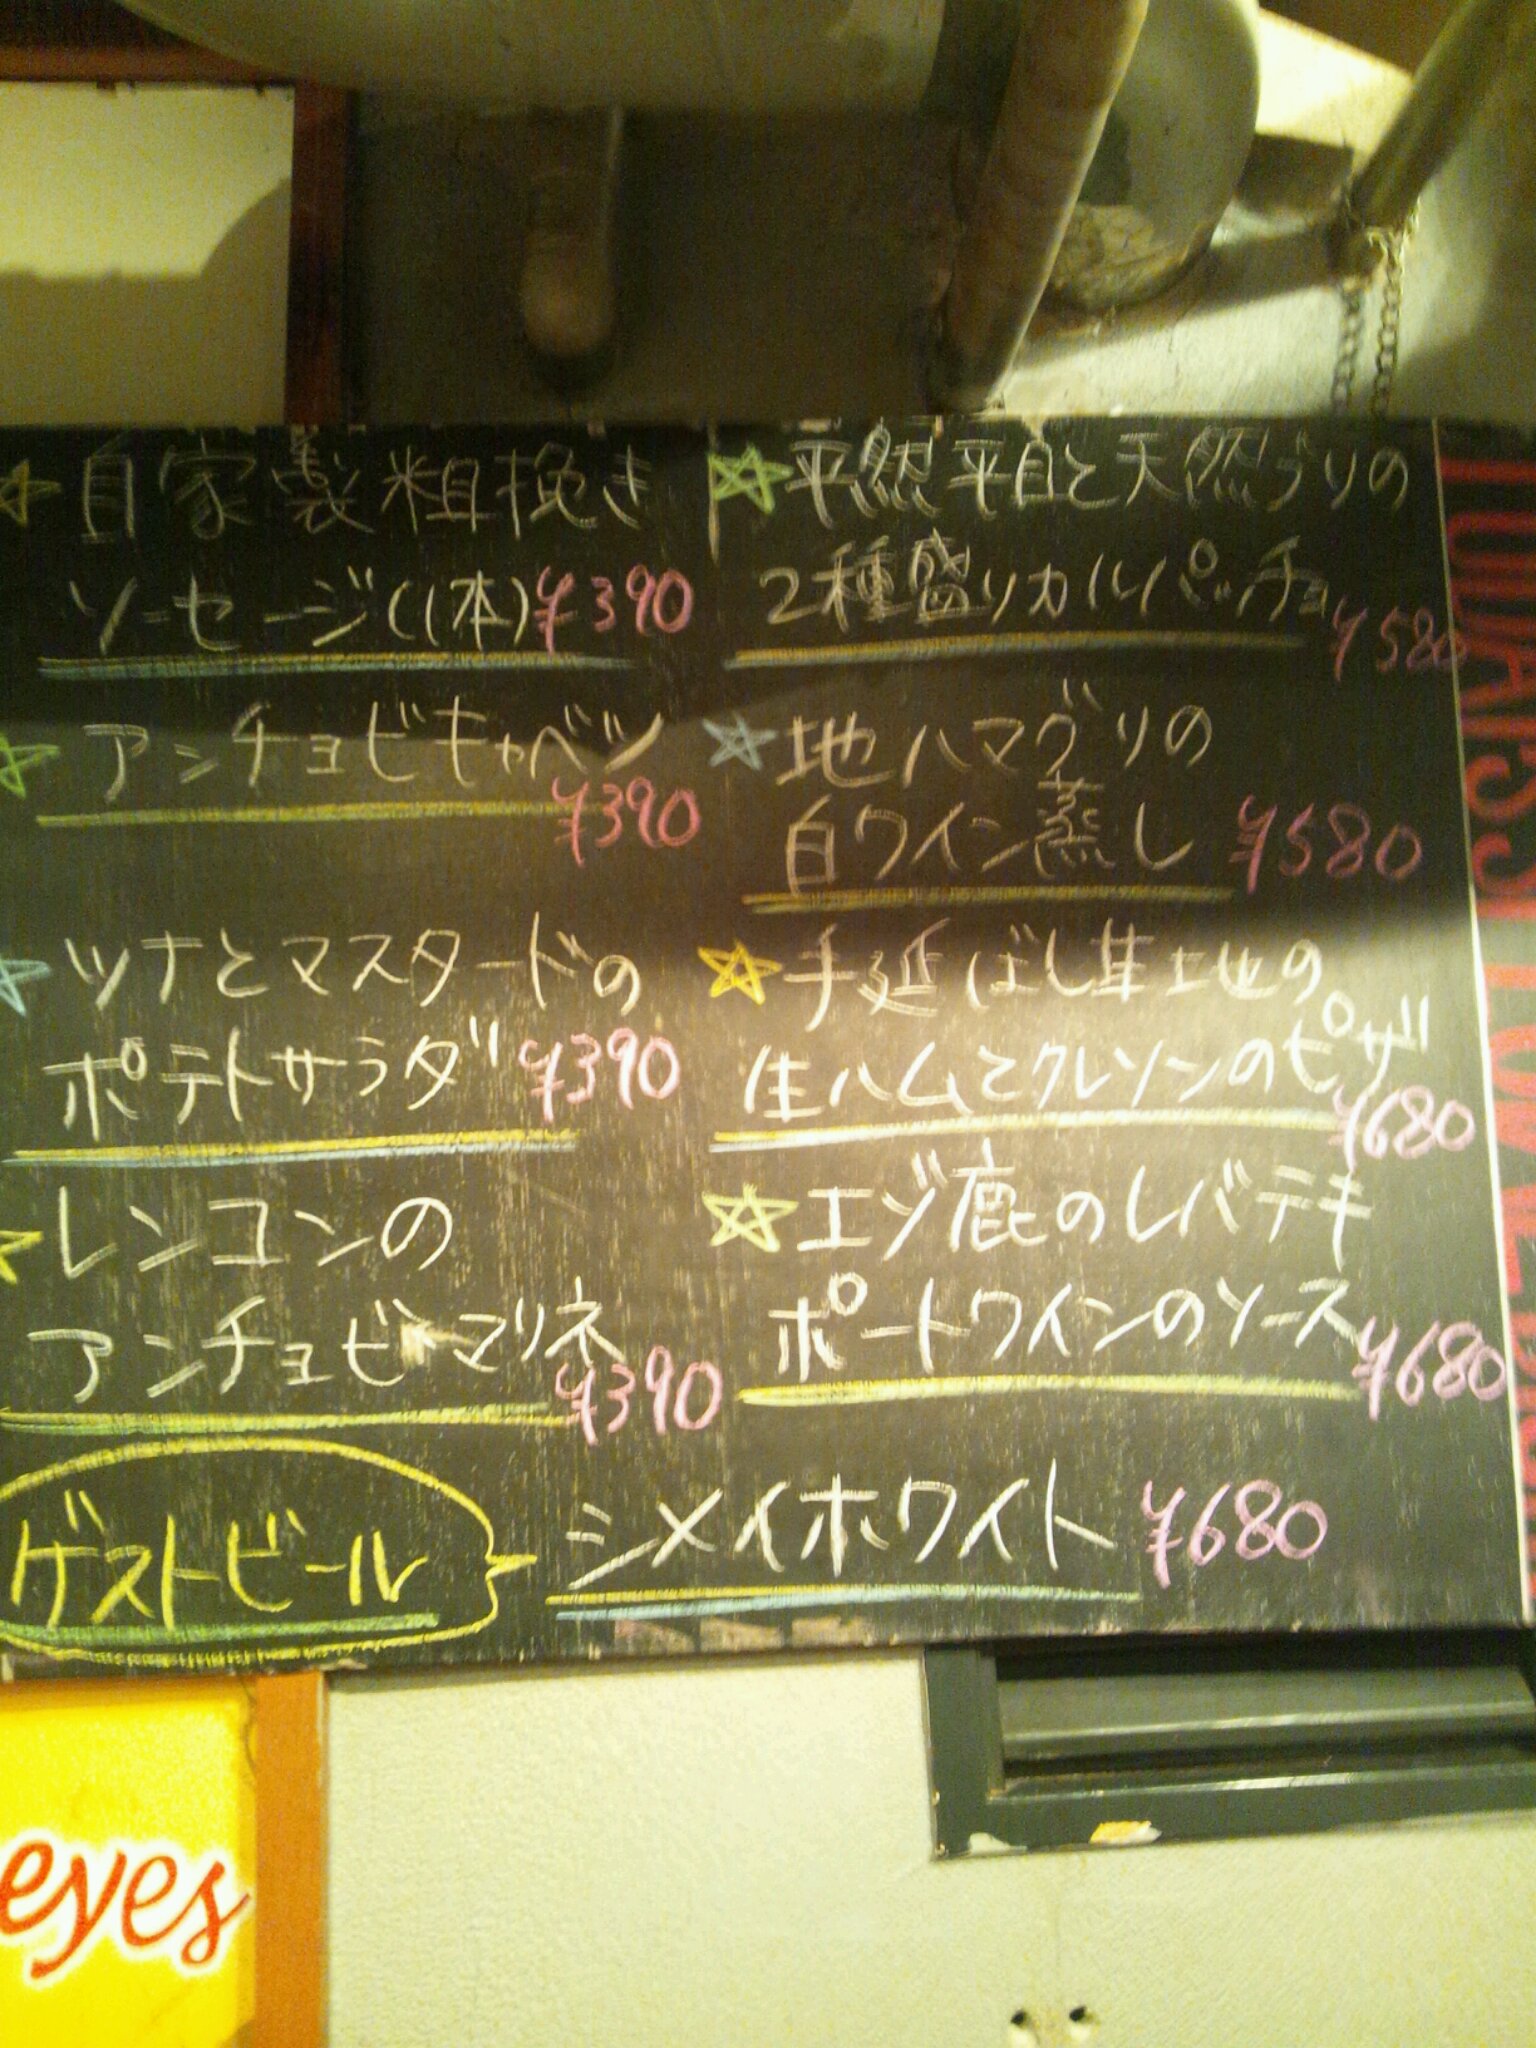 自家製粗挽き
ソーセージ(1本)¥390
アンチョビキャベツ
¥390
ツナとマスタードの
ポテトサラダ ¥390
レンコンの
アンチョビマリネ
¥390
平然平目と天然ブリの
2種盛りカルパッチョ
¥580
地ハマグリの
白ワイン蒸し ¥580
手延ばし生地の
生ハムとクレソンのピザ
¥680
エゾ鹿のレバテキ
ポートワインのソース
¥680
ゲストビール
シメイホワイト ¥680
eyes